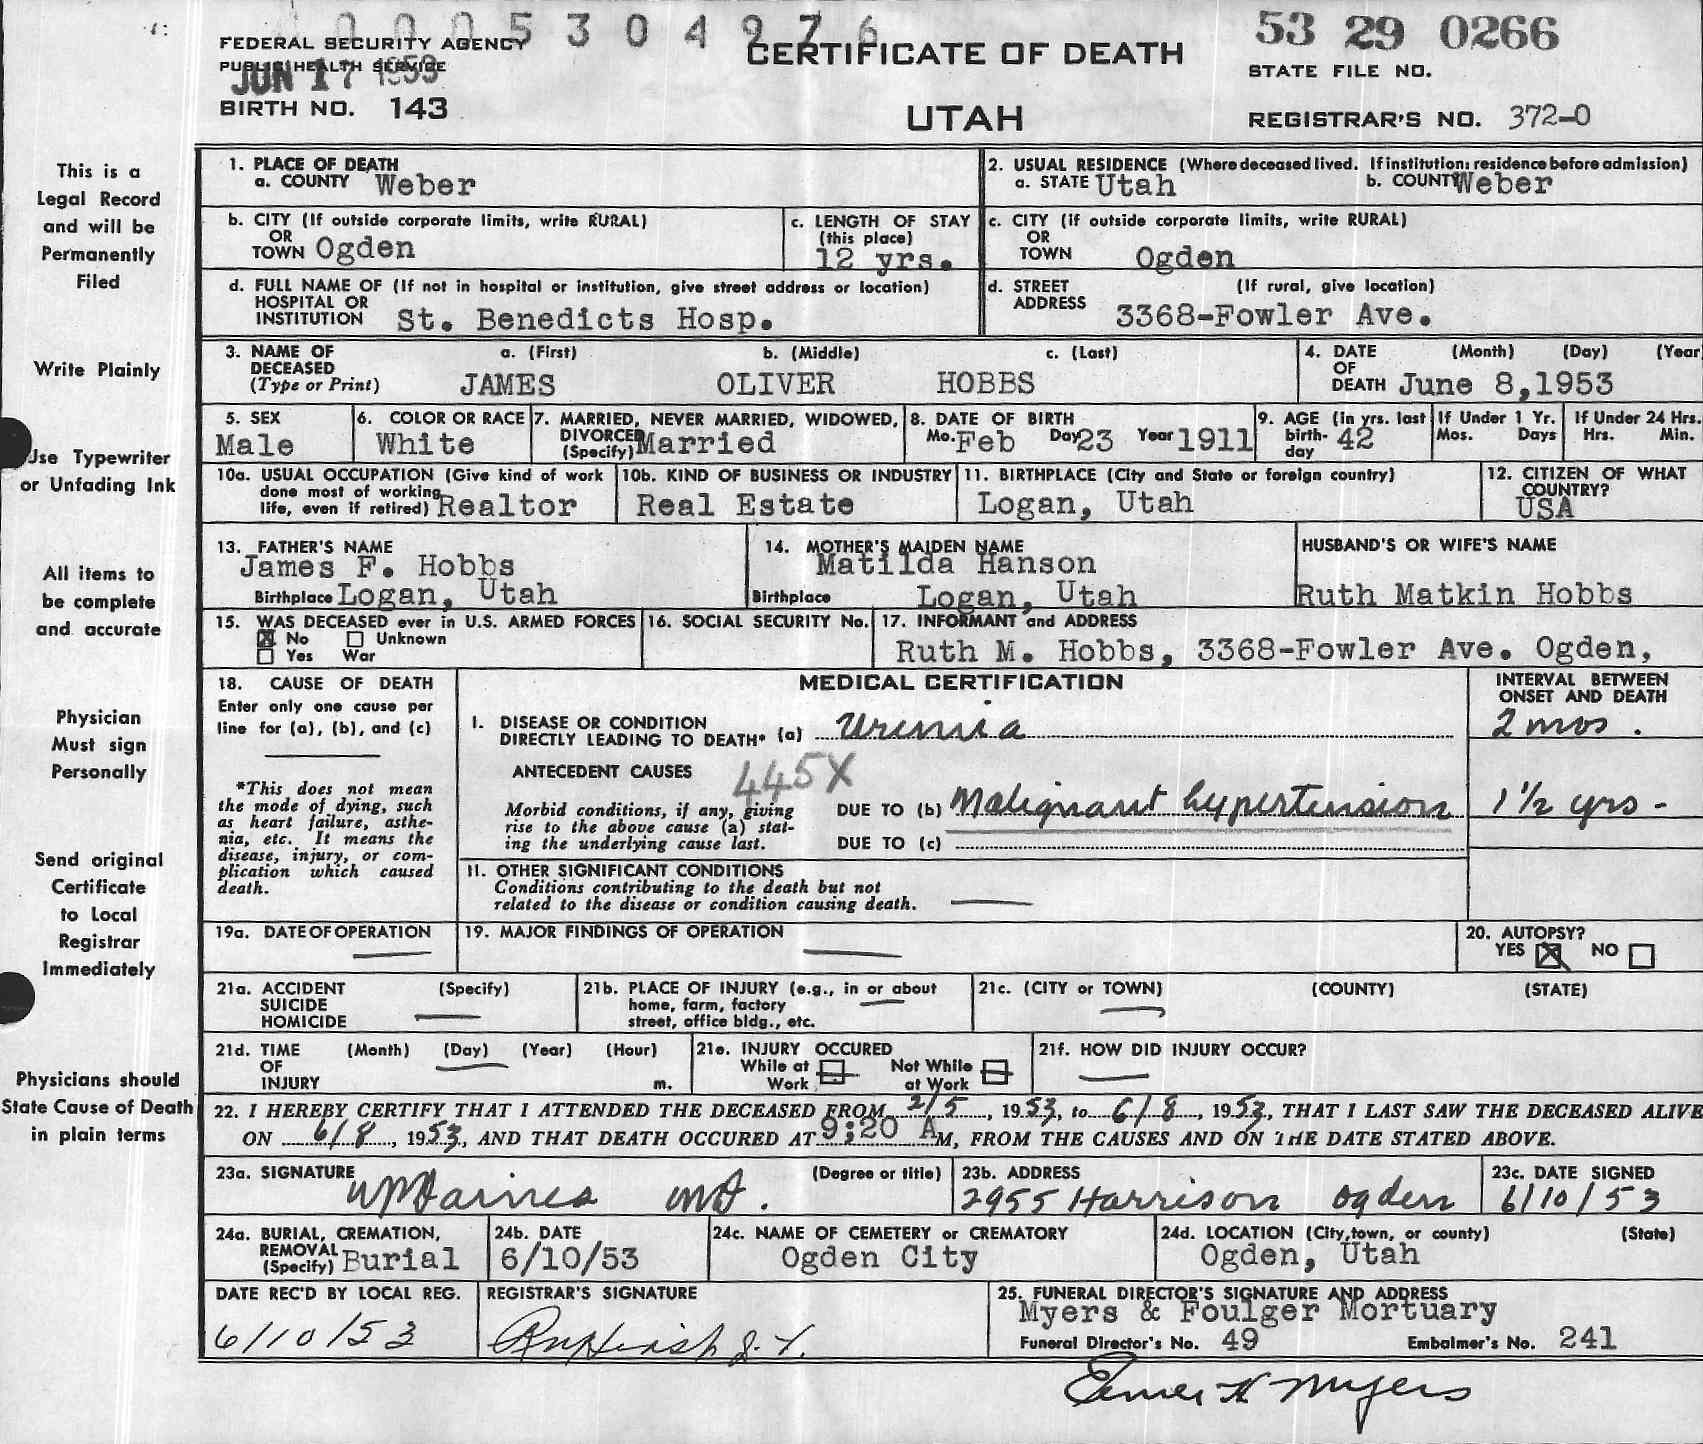 0005304976
53 29 0266
FEDERAL SECURITY AGENCY
PUBLIC HEALTH SERVICE
JUN 17 1953
CERTIFICATE OF DEATH
STATE FILE NO.
BIRTH NO. 143
UTAH
REGISTRAR'S NO. 372-0
This is a
Legal Record
and will be
Permanently
Filed
Write Plainly
Use Typewriter
or Unfading Ink
All items to
be complete
and accurate
Physician
Must sign
Personally
Send original
Certificate
to Local
Registrar
Immediately
Physicians should
State Cause of Death
in plain terms
1. PLACE OF DEATH
a. COUNTY Weber
2. USUAL RESIDENCE (Where deceased lived. If institution: residence before admission)
a. STATE Utah b. COUNTY Weber
b. CITY (If outside corporate limits, write RURAL)
OR
TOWN Ogden
c. LENGTH OF STAY
(this place)
12 yrs.
c. CITY (if outside corporate limits, write RURAL)
OR
TOWN Ogden
d. FULL NAME OF (If not in hospital or institution, give street address or location)
HOSPITAL OR
INSTITUTION St. Benedicts Hosp.
d. STREET (If rural, give location)
ADDRESS
3368-Fowler Ave.
3. NAME OF a. (First) b. (Middle) c. (Last)
DECEASED
(Type or Print) JAMES OLIVER HOBBS
4. DATE (Month) (Day) (Year
OF
DEATH June 8,1953
5. SEX
Male
6. COLOR OR RACE
White
7. MARRIED, NEVER MARRIED, WIDOWED,
DIVORCED
(Specify) Married
8. DATE OF BIRTH
Mo. Feb Day 23 Year 1911
9. AGE (in yrs. last
birth- 42
day
If Under 1 Yr.
Mos. Days
If Under 24 Hrs.
Hrs. Min.
10a. USUAL OCCUPATION (Give kind of work
done most of working
life, even if retired) Realtor
10b. KIND OF BUSINESS OR INDUSTRY
Real Estate
11. BIRTHPLACE (City and State or foreign country)
Logan, Utah
12. CITIZEN OF WHAT
COUNTRY?
USA
13. FATHER'S NAME
James F. Hobbs
Birthplace Logan, Utah
14. MOTHER'S MAIDEN NAME
Matilda Hanson
Birthplace Logan, Utah
HUSBAND'S OR WIFE'S NAME
Ruth Matkin Hobbs
15. WAS DECEASED ever in U.S. ARMED FORCES
No Unknown
Yes War
16. SOCIAL SECURITY No.
17. INFORMANT and ADDRESS
Ruth M. Hobbs, 3368-Fowler Ave. Ogden,
18. CAUSE OF DEATH
Enter only one cause per
line for (a), (b), and (c)
*This does not mean
the mode of dying, such
as heart failure, asthe-
nia, etc. It means the
disease, injury, or com-
plication which caused
death.
MEDICAL CERTIFICATION
INTERVAL BETWEEN
ONSET AND DEATH
I. DISEASE OR CONDITION
DIRECTLY LEADING TO DEATH* (a) Uremia 2 mos.
ANTECEDENT CAUSES 445X
Morbid conditions, if any, giving
rise to the above cause (a) stat-
ing the underlying cause last.
DUE TO (b) Malignant hypertension 1 1/2 yrs-
DUE TO (c)
II. OTHER SIGNIFICANT CONDITIONS
Conditions contributing to the death but not
related to the disease or condition causing death.
19a. DATE OF OPERATION
19. MAJOR FINDINGS OF OPERATION
20. AUTOPSY?
YES NO
21a. ACCIDENT (Specify)
SUICIDE
HOMICIDE
21b. PLACE OF INJURY (e.g., in or about
home, farm, factory
street, office bldg., etc.
21c. (CITY or TOWN) (COUNTY) (STATE)
21d. TIME (Month) (Day) (Year) (Hour)
OF
INJURY m.
21e. INJURY OCCURED
While at Not While
Work at Work
21f. HOW DID INJURY OCCUR?
22. I HEREBY CERTIFY THAT I ATTENDED THE DECEASED FROM 2/5, 1953, to 6/8, 1953, THAT I LAST SAW THE DECEASED ALIVE
ON 6/8, 1953, AND THAT DEATH OCCURED AT 9:20 A M, FROM THE CAUSES AND ON THE DATE STATED ABOVE.
23a. SIGNATURE (Degree or title)
MD.
23b. ADDRESS
2955 Harrison Ogden
23c. DATE SIGNED
6/10/53
24a. BURIAL, CREMATION,
REMOVAL
(Specify) Burial
24b. DATE
6/10/53
24c. NAME OF CEMETERY or CREMATORY
Ogden City
24d. LOCATION (City, town, or county) (State)
Ogden, Utah
DATE REC'D BY LOCAL REG.
6/10/53
REGISTRAR'S SIGNATURE
25. FUNERAL DIRECTOR'S SIGNATURE AND ADDRESS
Myers & Foulger Mortuary
Funeral Director's No. 49 Embalmer's No. 241
Elmer H Myers